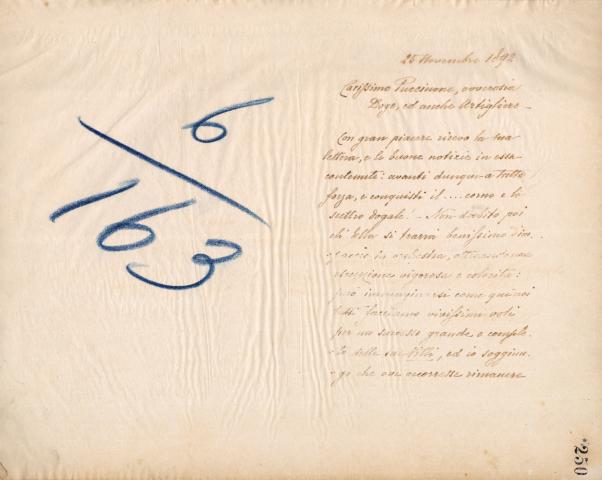 6
163
25 Novembre 1892
Carissimo Puccinone, ovverosia
Doge, ed anche Artigliere –
Con gran piacere ricevo la sua
lettera, e le buone notizie in essa
contenute: avanti dunque a tutta
forza, e conquisti il .... corno e lo
scettro dogale. – Non dubito, poi
ch'Ella si trarrà benissimo
in orchestra, ottenendone
esecuzione vigorosa e colorita:
può immaginarsi come qui noi
tutti facciamo vivissimi voti
per un successo grande e comple-
to delle sue Villi, ed io soggiun-
go che ove occorresse rimanere
250